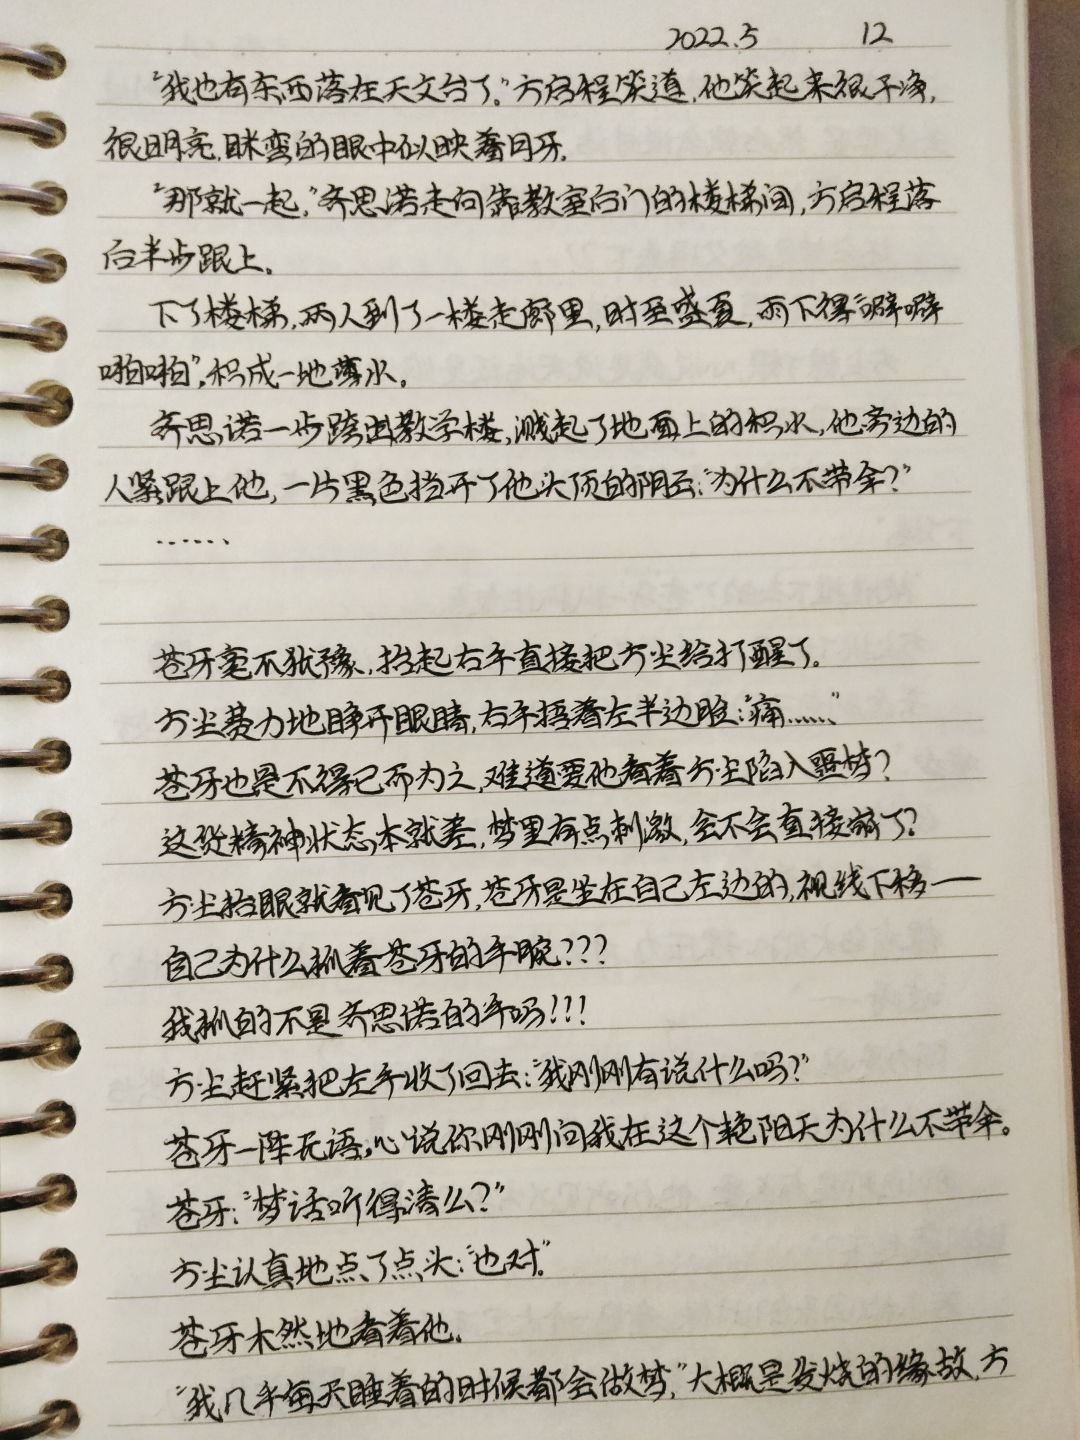 2022.5 12
“我也有东西落在天文台了。”方启程笑道，他笑起来很干净，
很明亮，眯弯的眼中似映着月牙。
“那就一起，”齐思诺走向靠教室后门的楼梯间，方启程落
后半步跟上。
下了楼梯，两人到了一楼走廊里，时至盛夏，雨下得“噼噼
啪啪”，积成一地薄水。
齐思诺一步跨出教学楼，溅起了地面上的积水，他旁边的
人紧跟上他，一片黑色挡开了他头顶的阴云：“为什么不带伞？”
……
苍牙毫不犹豫，抬起右手直接把方尘给打醒了。
方尘费力地睁开眼睛，右手捂着左半边脸：“痛……”
苍牙也是不得已而为之，难道要他看着方尘陷入噩梦？
这货精神状态本就差，梦里有点刺激，会不会直接崩了？
方尘抬眼就看见了苍牙，苍牙是坐在自己左边的，视线下移——
自己为什么抓着苍牙的手腕？？？
我抓的不是齐思诺的手吗！！！
方尘赶紧把左手收了回去：“我刚刚有说什么吗？”
苍牙一阵无语，心说你刚刚问我在这个艳阳天为什么不带伞。
苍牙：“梦话听得清么？”
方尘认真地点了点头：“也对。”
苍牙木然地看着他。
“我几乎每天睡着的时候都会做梦，”大概是发烧的缘故，方